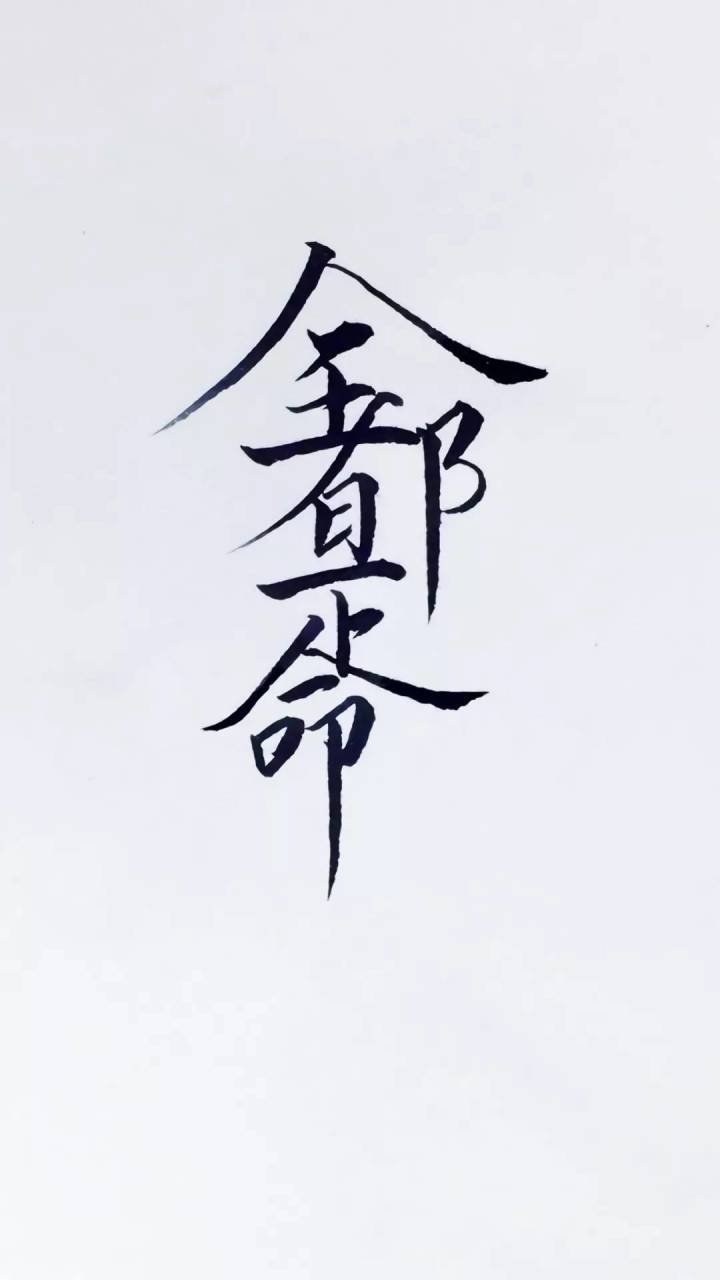 全都是命